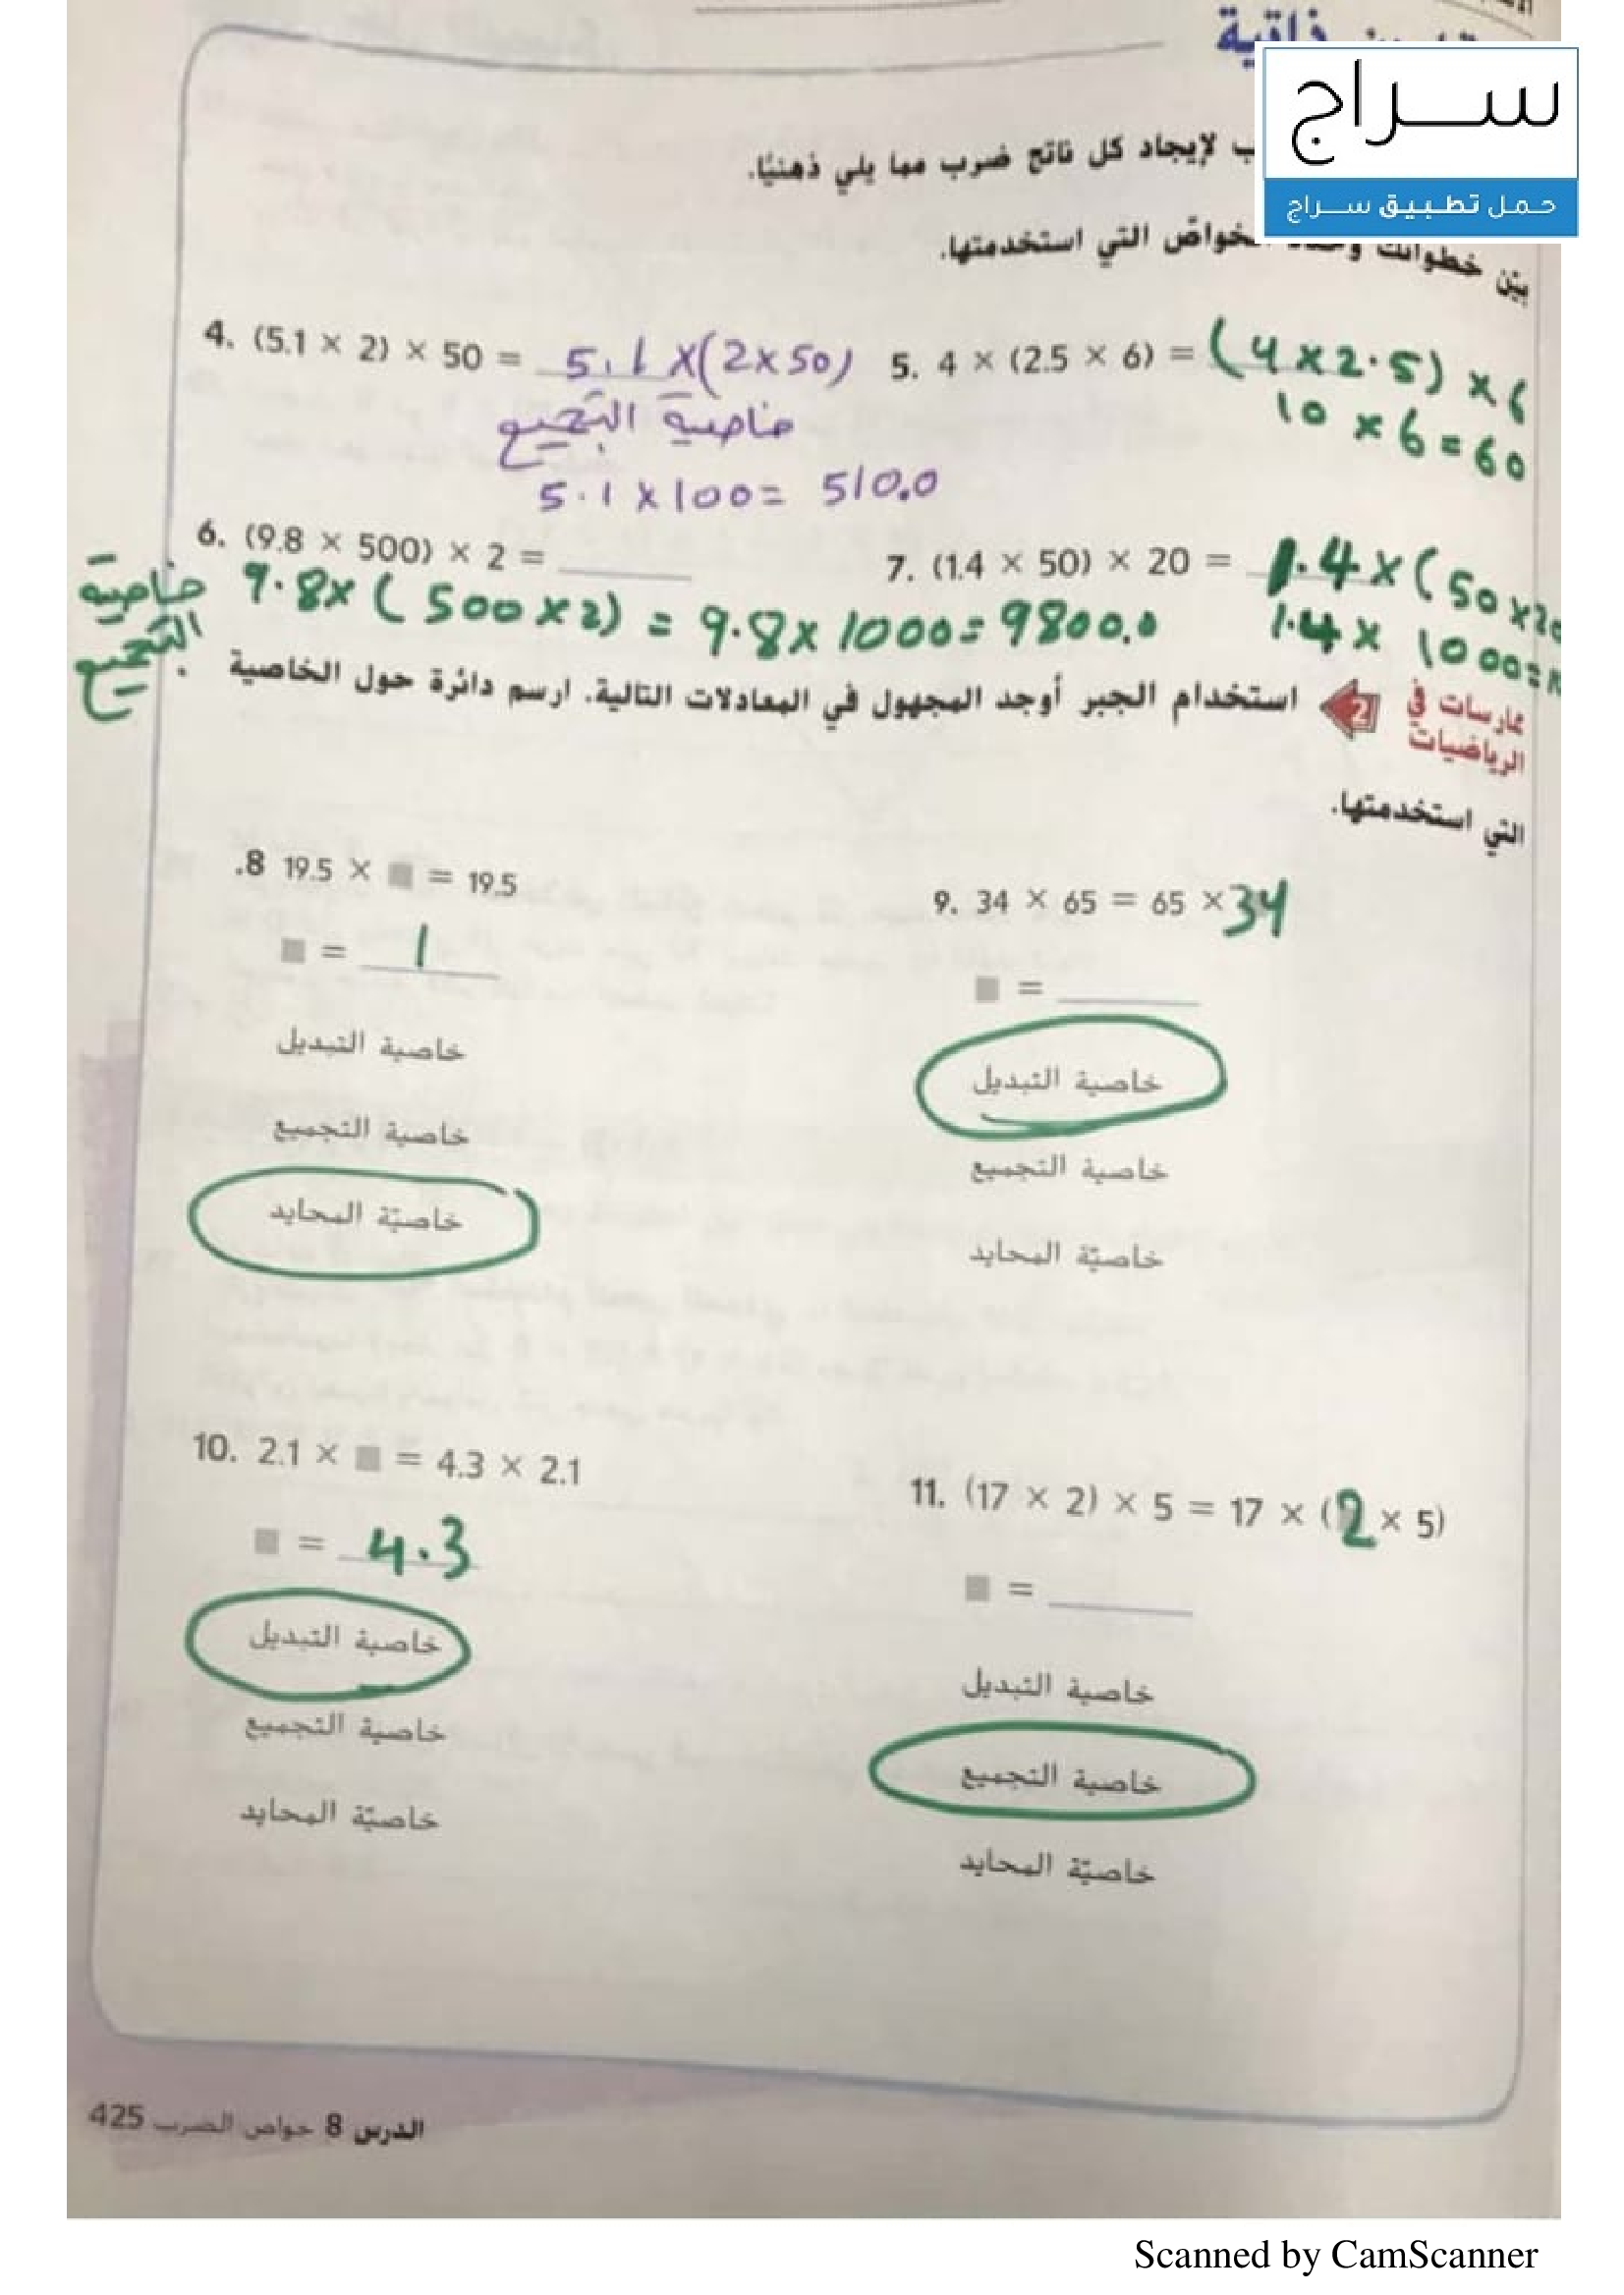 سراج
حمل تطبيق سراج
لإيجاد كل ناتج ضرب مما يلي ذهنيًا.
بيّن خطواتك التي استخدمتها.
4. (5.1 × 2) × 50 = 5.1 ×(2×50)
خاصية التجميع
5.1 × 100 = 510.0
5. 4 × (2.5 × 6) = (4 × 2.5) × 6
10 × 6 = 60
6. (9.8 × 500) × 2 =
9.8 × (500 × 2) = 9.8 × 1000 = 9800.0
خاصية
التجميع
7. (1.4 × 50) × 20 = 1.4 × (50 × 20
1.4 × 1000 =
ممارسات في
الرياضيات
2
استخدام الجبر أوجد المجهول في المعادلات التالية. ارسم دائرة حول الخاصية
التي استخدمتها.
.8 19.5 × ■ = 19.5
■ = 1
خاصية التبديل
خاصية التجميع
خاصيّة المحايد
9. 34 × 65 = 65 × 34
■ =
خاصية التبديل
خاصية التجميع
خاصيّة المحايد
10. 2.1 × ■ = 4.3 × 2.1
■ = 4.3
خاصية التبديل
خاصية التجميع
خاصيّة المحايد
11. (17 × 2) × 5 = 17 × (2 × 5)
■ =
خاصية التبديل
خاصية التجميع
خاصيّة المحايد
الدرس 8 خواص الضرب 425
Scanned by CamScanner